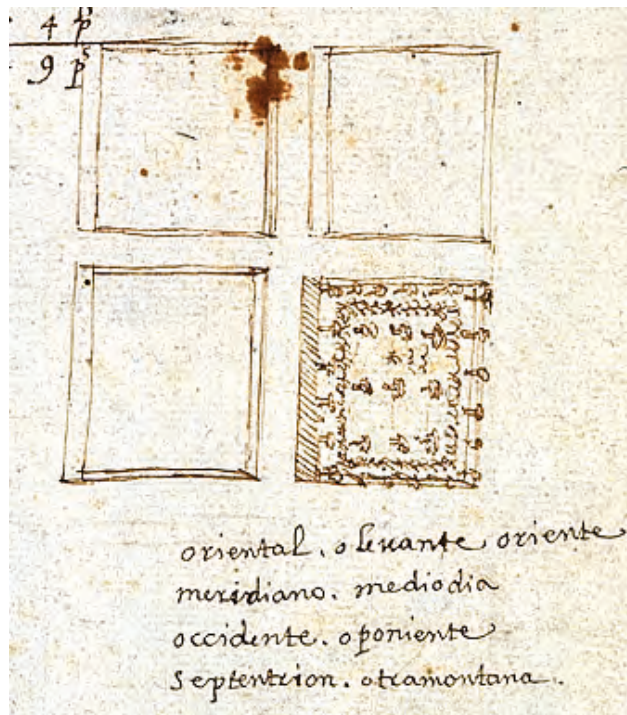 4 p
9 p
oriental. o levante oriente
meridiano. mediodia
occidente. o poniente
septentrion. o tramontana.